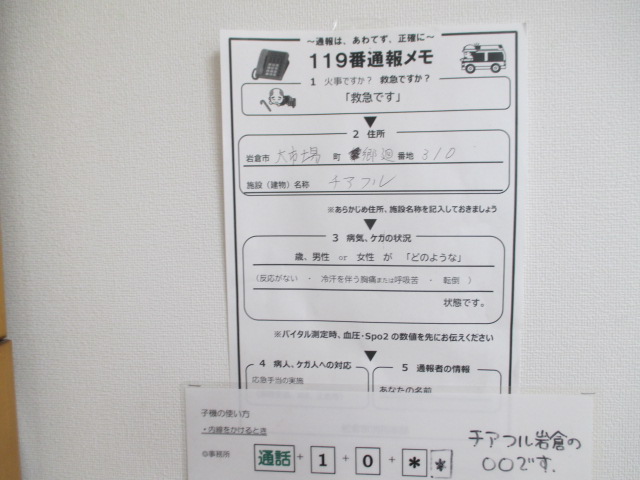 ～通報は、あわてず、正確に～
119番通報メモ
1 火事ですか？ 救急ですか？
「救急です」
2 住所
岩倉市 大市場 町 郷廻 番地 310
施設（建物）名称 チアフル
※あらかじめ住所、施設名称を記入しておきましょう
3 病気、ケガの状況
歳、男性 or 女性 が 「どのような」
（反応がない ・ 冷汗を伴う胸痛または呼吸苦 ・ 転倒 ）
状態です。
※バイタル測定時、血圧・Spo2 の数値を先にお伝えください
4 病人、ケガ人への対応
応急手当の実施
5 通報者の情報
あなたの名前
子機の使い方
・内線をかけるとき
◎事務所 通話 + 1 + 0 + * *
チアフル岩倉の
〇〇です.